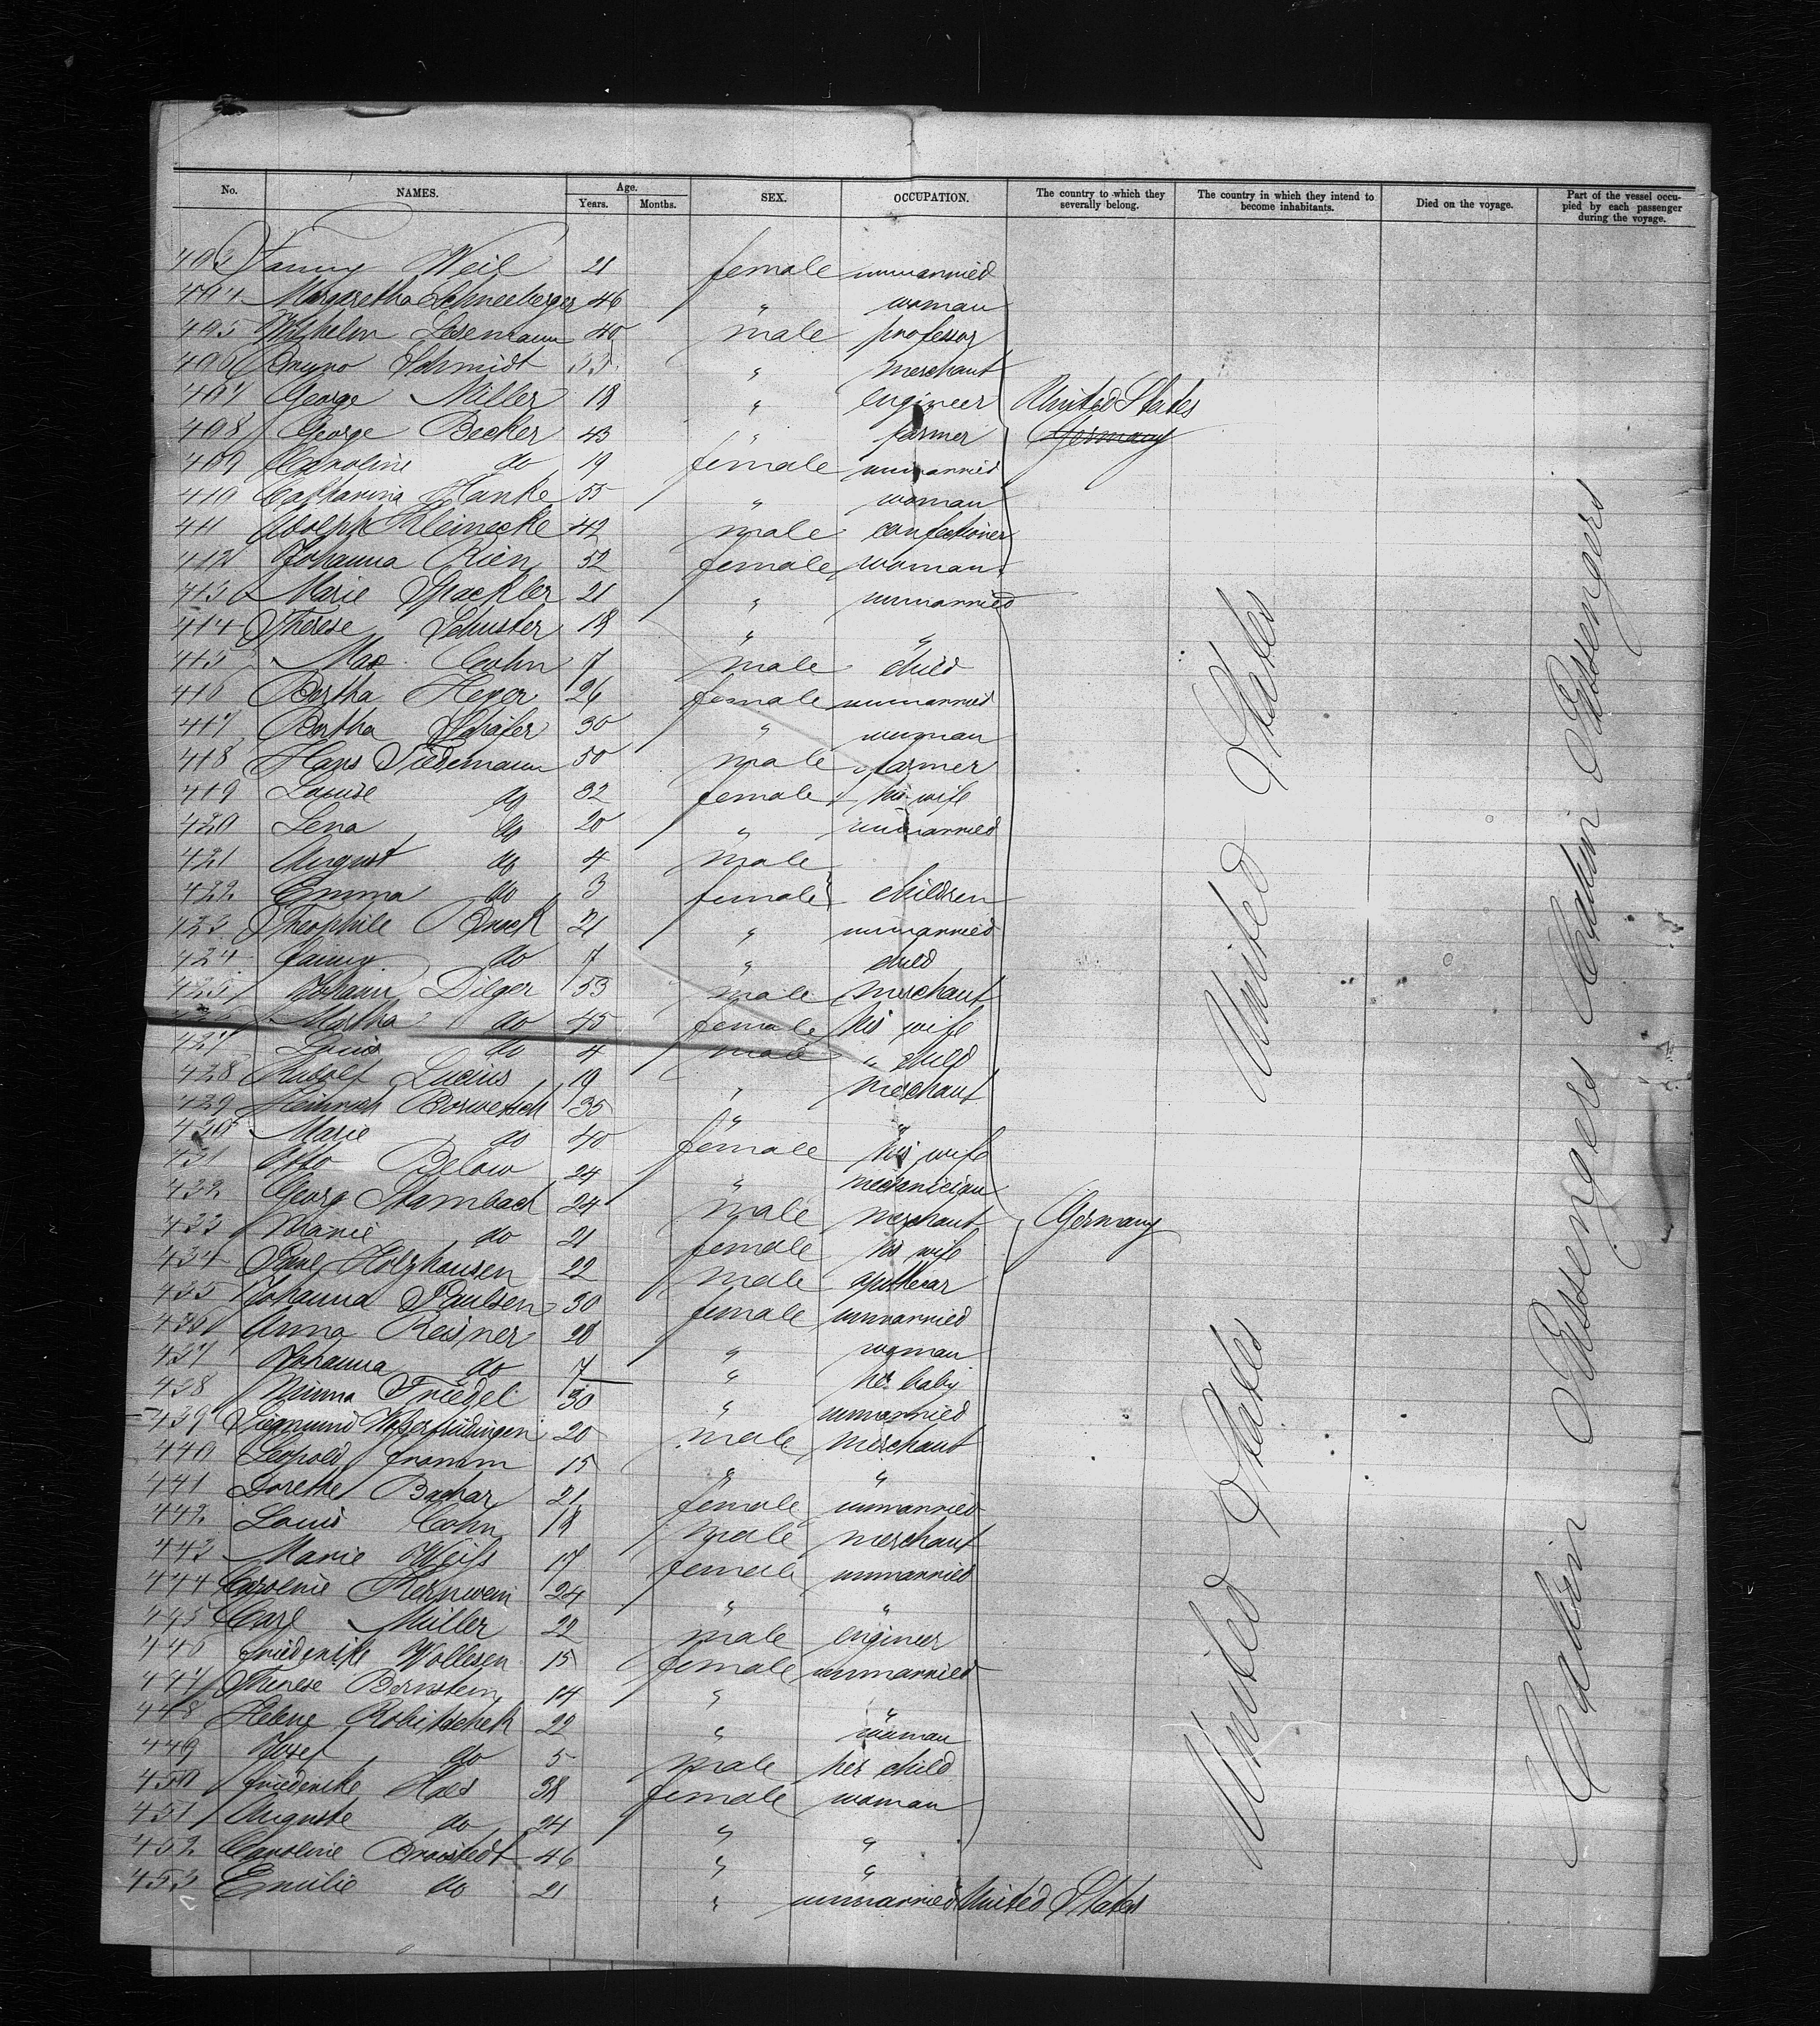 No. NAMES. Age. Years. Months. SEX. OCCUPATION. The country to which they severally belong. The country in which they intend to become inhabitants. Died on the voyage. Part of the vessel occupied by each passenger during the voyage.
403 Fanny Weil 21 female unmarried
404 Margaretha Schneeberger 46 " woman
405 Wilhelm Lesemann 40 male professor
406 Bruno Schmidt 35 " merchant
407 George Miller 18 " engineer United States
408 George Becker 43 " farmer Germany
409 Caroline do 19 female unmarried
410 Catharina Hanke 55 " woman
411 Adolph Kleinecke 42 male confectioner
412 Johanna Rien 52 female woman
413 Marie Spackler 21 " unmarried
414 Therese Schuster 18 " "
415 Max Cohn 7 male child
416 Bertha Heyer 26 female unmarried
417 Bertha Schäfer 30 " wuman
418 Hans Tiedemann 50 male farmer
419 Louise do 32 female his wife
420 Lena do 20 " unmarried
421 August do 4 male
422 Emma do 3 female children
423 Theophile Brock 21 " unmarried
424 Fanny do 7 " child
425 Johann Dilger 53 male merchant
426 Martha do 45 female his wife
427 Louis do 4 male " child
428 Rudolf Lucius 19 " merchant
429 Heinrich 35 " "
430 Marie do 40 female his wife
431 Otto Below 24 " mechanician
432 Georg Stambach 24 male merchant Germany
433 Marie do 21 female his wife
434 Paul Holzhausen 22 male apothecar
435 Johanna Paulsen 30 female unmarried
436 Anna Reisner 28 " woman
437 Johanna do 7 " her baby
438 Minna Friedel 30 " unmarried
439 Siegmund 20 male merchant
440 Leopold Fromm 15 " "
441 Dorethe Bachar 21 female unmarried
442 Louis Cohn 18 male merchant
443 Marie Weiß 17 female unmarried
444 Caroline Kernwein 24 " "
445 Carl Müller 22 male engineer
446 Friederike Wollesen 15 female unmarried
447 Therese Bernstein 14 " "
448 Helene Robitschek 22 " wuman
449 Josef do 5 male her child
450 Friederike Haes 38 female woman
451 Auguste do 24 " "
452 Caroline 46 " "
453 Emilie do 21 " unmarried United States
United States United States
Cabin Passengers Cabin Passengers